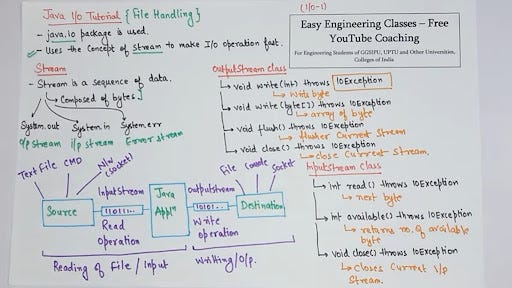 Java I/O Tutorial {File Handling}
(I/O-1)
- java.io package is used.
- Uses the concept of stream to make I/O operation fast.
Easy Engineering Classes – Free
YouTube Coaching
For Engineering Students of GGSIPU, UPTU and Other Universities,
Colleges of India
Stream
- Stream is a sequence of data.
Composed of bytes.
System.out
System.in
System.err
O/p Stream
i/p stream
Error stream
OutputStream class
void write(int) throws IOException
write byte
void write(byte[]) throws IOException
array of byte
void flush() throws IOException
flushes Current Stream
void close() throws IOException
close Current Stream.
Text File
CMD
N/w (socket)
File
Console
Socket
Source
InputStream
11011...
Read
Operation
Java
Appln
Outputstream
11011...
Write
operation
Destination
Reading of File / Input
Writing/O/p.
InputStream Class
int read() throws IOException
next byte
int available() throws IOException
returns no. of available
byte
void close() throws IOException
Closes Current I/p
Stream.